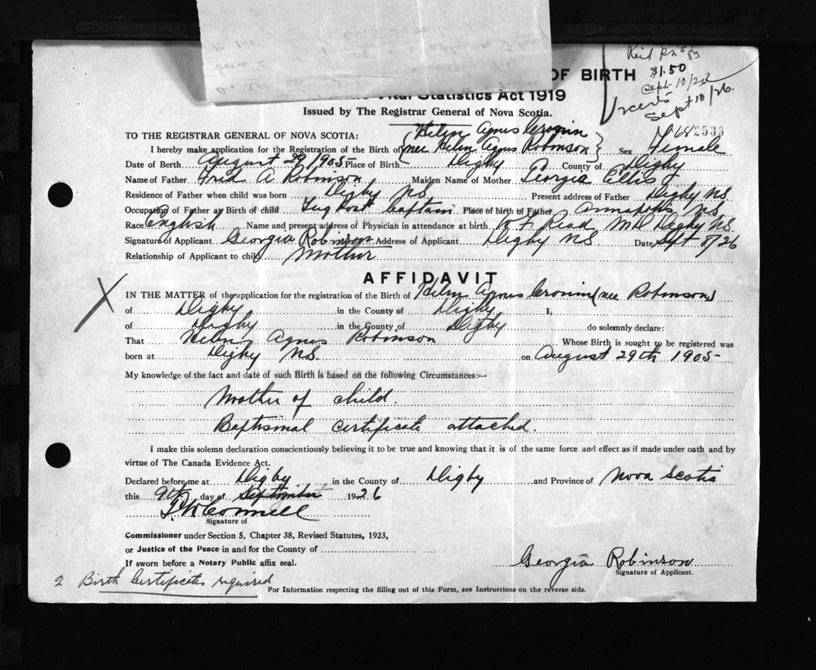 OF BIRTH
Vital Statistics Act 1919
$1.50
Sept 10/26
Sept 10/26.
Issued by The Registrar General of Nova Scotia.
Helen Agnes Cronin
TO THE REGISTRAR GENERAL OF NOVA SCOTIA:
I hereby make application for the Registration of the Birth of (nee Helen Agnes Robinson) Sex Female
Date of Birth August 29 1905 Place of Birth Digby County of Digby
Name of Father Fred A Robinson Maiden Name of Mother Georgia Ellis
Residence of Father when child was born Digby NS Present address of Father Digby NS.
Occupation of Father at Birth of child Tug Boat Captain Place of birth of Father Annapolis N.S.
Race English Name and present address of Physician in attendance at birth Read MD Digby NS.
Signature of Applicant Georgia Robinson Address of Applicant Digby NS Date Sept 8/26
Relationship of Applicant to child Mother
AFFIDAVIT
X
IN THE MATTER of the application for the registration of the Birth of Helen Agnes Cronin (nee Robinson)
of Digby in the County of Digby I,
of Digby in the County of Digby do solemnly declare:
That Helen Agnes Robinson Whose Birth is sought to be registered was
born at Digby NS. on August 29th 1905-
My knowledge of the fact and date of such Birth is based on the following Circumstances:—
Mother of child.
Baptismal certificate attached.
I make this solemn declaration conscientiously believing it to be true and knowing that it is of the same force and effect as if made under oath and by
virtue of The Canada Evidence Act.
Declared before me at Digby in the County of Digby and Province of Nova Scotia
this 9th day of September 1926
Signature of
Commissioner under Section 5, Chapter 38, Revised Statutes, 1923,
or Justice of the Peace in and for the County of
If sworn before a Notary Public affix seal.
Georgia Robinson
Signature of Applicant.
2 Birth Certificates required
For Information respecting the filling out of this Form, see Instructions on the reverse side.